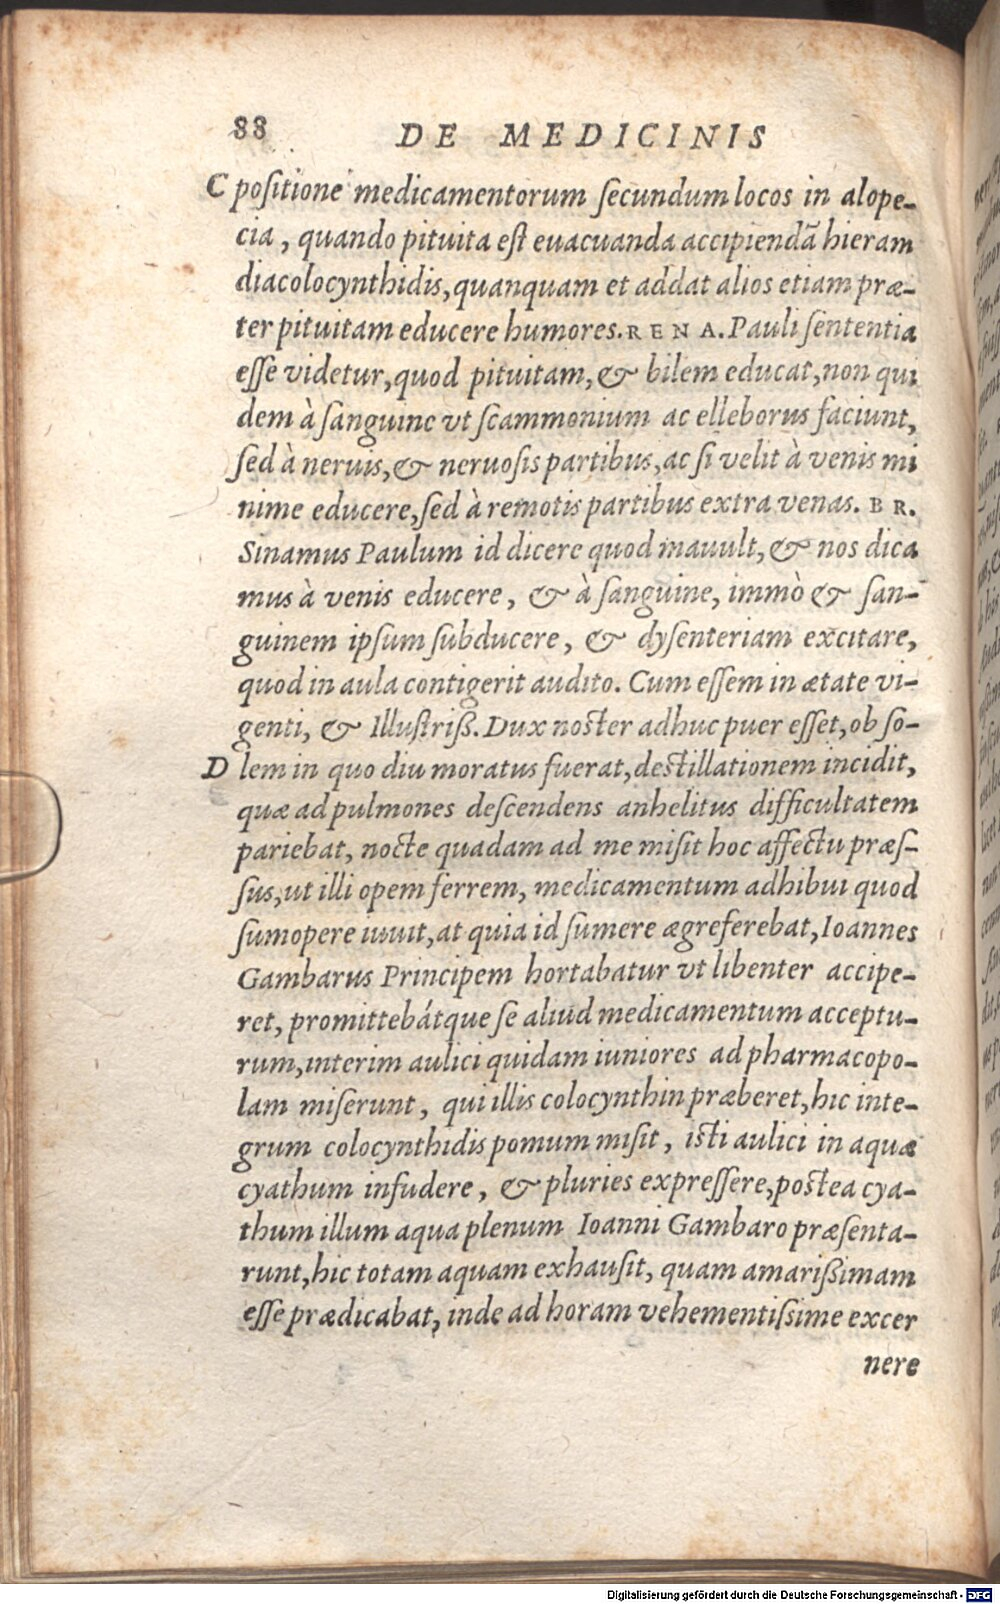 88 DE MEDICINIS
C positione medicamentorum secundum locos in alope-
cia, quando pituita est euacuanda accipiendã hieram
diacolocynthidis, quanquam et addat alios etiam præ-
ter pituitam educere humores. RENA. Pauli sententia
esse videtur, quod pituitam, & bilem educat, non qui
dem à sanguine vt scammonium ac elleborus faciunt,
sed à neruis, & neruosis partibus, ac si velit à venis mi
nime educere, sed à remotis partibus extra venas. BR.
Sinamus Paulum id dicere quod mauult, & nos dica
mus à venis educere, & à sanguine, immò & san-
guinem ipsum subducere, & dysenteriam excitare,
quod in aula contigerit audito. Cum essem in ætate vi-
genti, & Illustriß. Dux noster adhuc puer esset, ob so-
D lem in quo diu moratus fuerat, destillationem incidit,
quæ ad pulmones descendens anhelitus difficultatem
pariebat, nocte quadam ad me misit hoc affectu præs-
sus, ut illi opem ferrem, medicamentum adhibui quod
sumopere iuuit, at quia id sumere ægreferebat, Ioannes
Gambarus Principem hortabatur vt libenter accipe-
ret, promittebátque se aliud medicamentum acceptu-
rum, interim aulici quidam iuniores ad pharmacopo-
lam miserunt, qui illis colocynthin præberet, hic inte-
grum colocynthidis pomum misit, isti aulici in aquæ
cyathum infudere, & pluries expressere, postea cya-
thum illum aqua plenum Ioanni Gambaro præsenta-
runt, hic totam aquam exhausit, quam amarißimam
esse prædicabat, inde ad horam vehementissime excer
nere
Digitalisierung gefördert durch die Deutsche Forschungsgemeinschaft - DFG